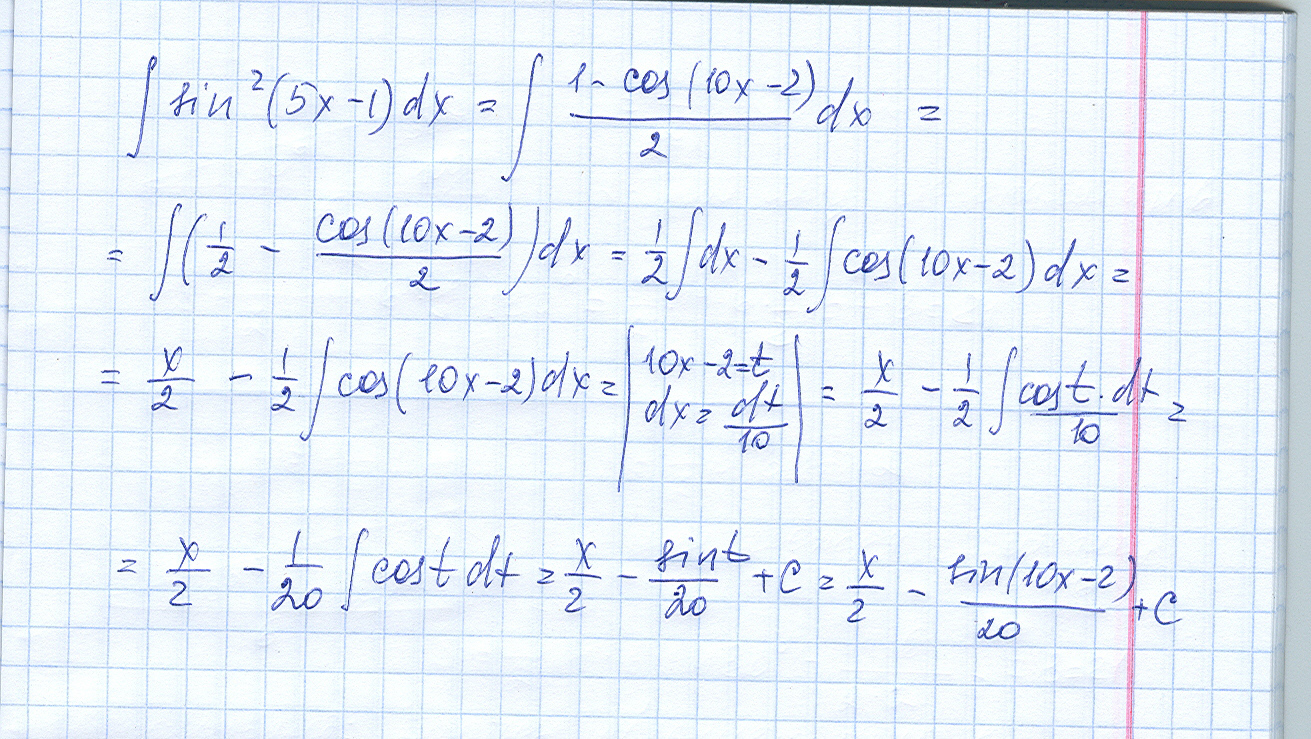 ∫ sin²(5x-1)dx = ∫ (1 - cos(10x-2))/2 dx =
= ∫(1/2 - cos(10x-2)/2)dx = 1/2 ∫dx - 1/2 ∫cos(10x-2)dx =
= x/2 - 1/2 ∫cos(10x-2)dx = |10x-2=t dx = dt/10| = x/2 - 1/2 ∫ cos t · dt/10 =
= x/2 - 1/20 ∫cos t dt = x/2 - sin t/20 + C = x/2 - sin(10x-2)/20 + C